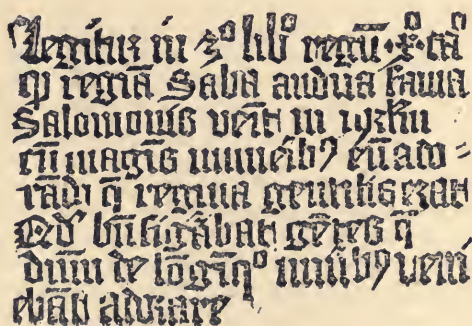 Legitur in 3° lib° regū · x° · ca°
ꝙ regiā Saba audita fama
Salomonis venīt in ihrlm
cū magīs munēibꝰ eū ado=
rādi q̄ regina gentilis erat
Qd̄ bn̄ sigābat gētes q̄
dn̄m de lōgīq° mūibꝰ veni
ebāt adorare